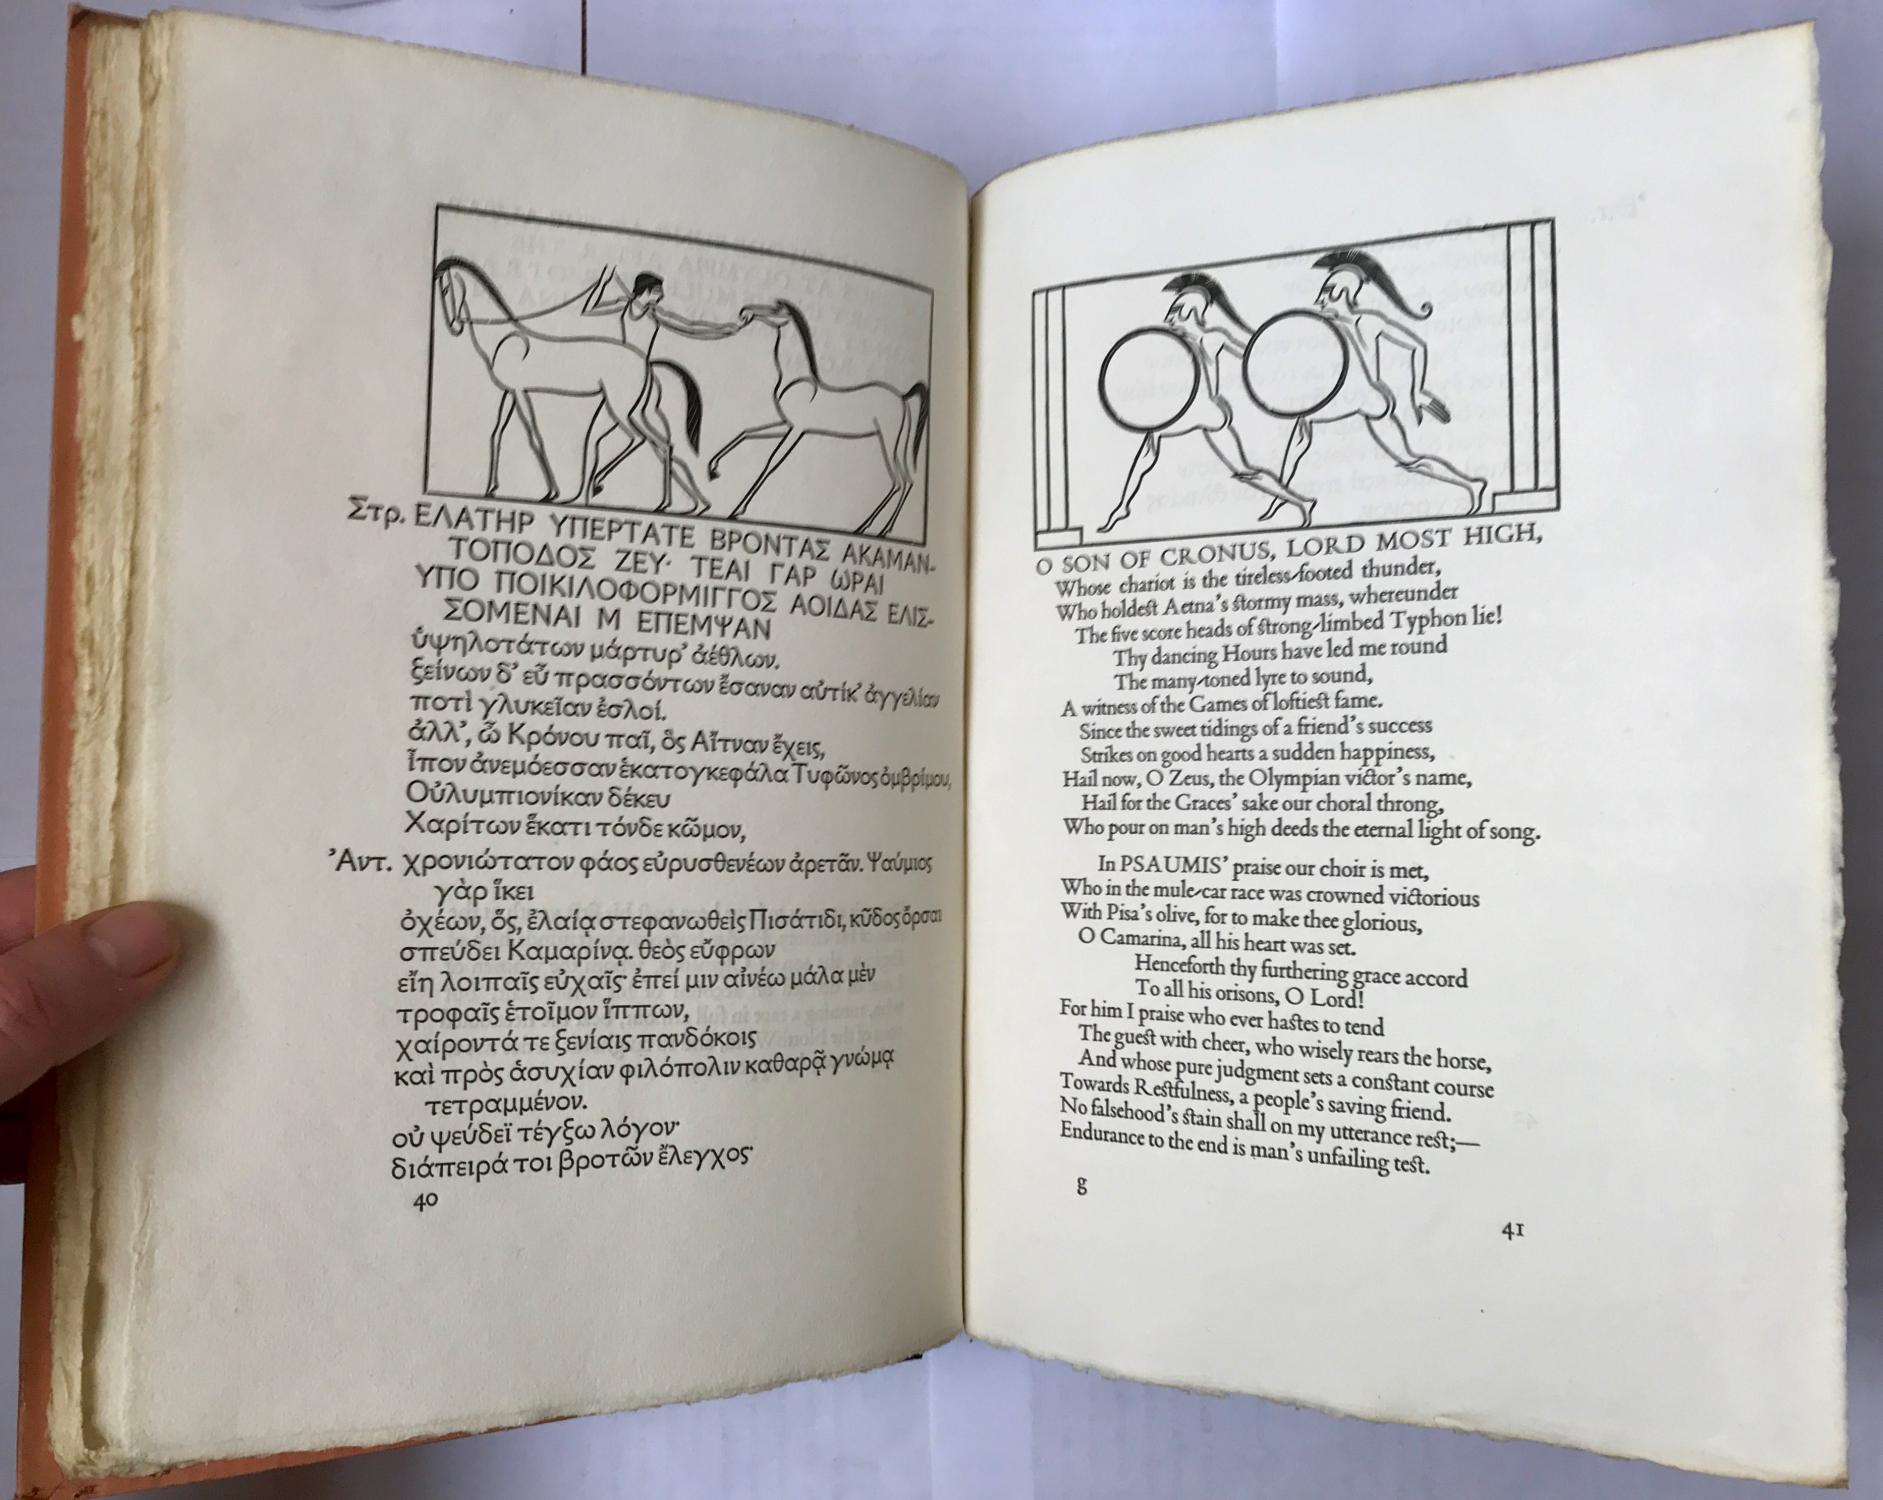 Στρ. ΕΛΑΤΗΡ ΥΠΕΡΤΑΤΕ ΒΡΟΝΤΑΣ ΑΚΑΜΑΝ-
ΤΟΠΟΔΟΣ ΖΕΥ· ΤΕΑΙ ΓΑΡ ΩΡΑΙ
ΥΠΟ ΠΟΙΚΙΛΟΦΟΡΜΙΓΓΟΣ ΑΟΙΔΑΣ ΕΛΙΣ-
ΣΟΜΕΝΑΙ Μ ΕΠΕΜΨΑΝ
ὑψηλοτάτων μάρτυρ’ ἀέθλων.
ξείνων δ’ εὖ πρασσόντων ἔσαναν αὐτίκ’ ἀγγελίαν
ποτὶ γλυκεῖαν ἐσλοί.
ἀλλ’, ὦ Κρόνου παῖ, ὃς Αἴτναν ἔχεις,
ἶπον ἀνεμόεσσαν ἑκατογκεφάλα Τυφῶνος ὀμβρίμου,
Οὐλυμπιονίκαν δέκευ
Χαρίτων ἕκατι τόνδε κῶμον,
Ἀντ. χρονιώτατον φάος εὐρυσθενέων ἀρετᾶν. Ψαύμιος
γὰρ ἵκει
ὀχέων, ὅς, ἐλαίᾳ στεφανωθεὶς Πισάτιδι, κῦδος ὄρσαι
σπεύδει Καμαρίνᾳ. θεὸς εὔφρων
εἴη λοιπαῖς εὐχαῖς· ἐπεί μιν αἰνέω μάλα μὲν
τροφαῖς ἑτοῖμον ἵππων,
χαίροντά τε ξενίαις πανδόκοις
καὶ πρὸς ἁσυχίαν φιλόπολιν καθαρᾷ γνώμᾳ
τετραμμένον.
οὐ ψεύδεϊ τέγξω λόγον·
διάπειρά τοι βροτῶν ἔλεγχος·
40
O SON OF CRONUS, LORD MOST HIGH,
Whose chariot is the tireless-footed thunder,
Who holdest Aetna's stormy mass, whereunder
The five score heads of strong-limbed Typhon lie!
Thy dancing Hours have led me round
The many-toned lyre to sound,
A witness of the Games of loftiest fame.
Since the sweet tidings of a friend's success
Strikes on good hearts a sudden happiness,
Hail now, O Zeus, the Olympian victor's name,
Hail for the Graces' sake our choral throng,
Who pour on man's high deeds the eternal light of song.
In PSAUMIS' praise our choir is met,
Who in the mule-car race was crowned victorious
With Pisa's olive, for to make thee glorious,
O Camarina, all his heart was set.
Henceforth thy furthering grace accord
To all his orisons, O Lord!
For him I praise who ever hastes to tend
The guest with cheer, who wisely rears the horse,
And whose pure judgment sets a constant course
Towards Restfulness, a people's saving friend.
No falsehood's stain shall on my utterance rest;—
Endurance to the end is man's unfailing test.
g
41